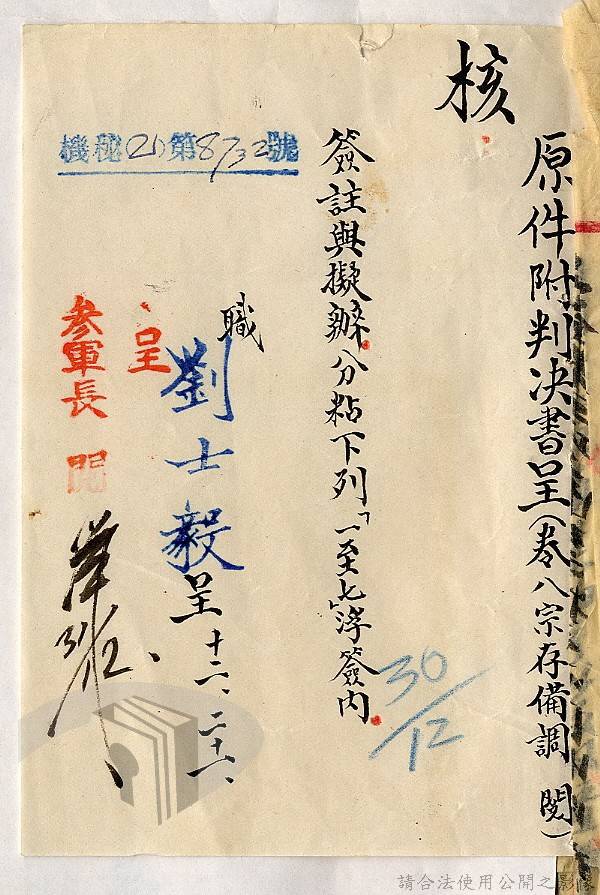 核
原件附判决書呈(卷八宗存備調 閱)
簽註與擬辦分粘下列「一至七」浮簽內
30/12
職
劉士毅呈 十二、二十一、
呈
參軍長 閱
機秘(21)第8732號
請合法使用公開之影像